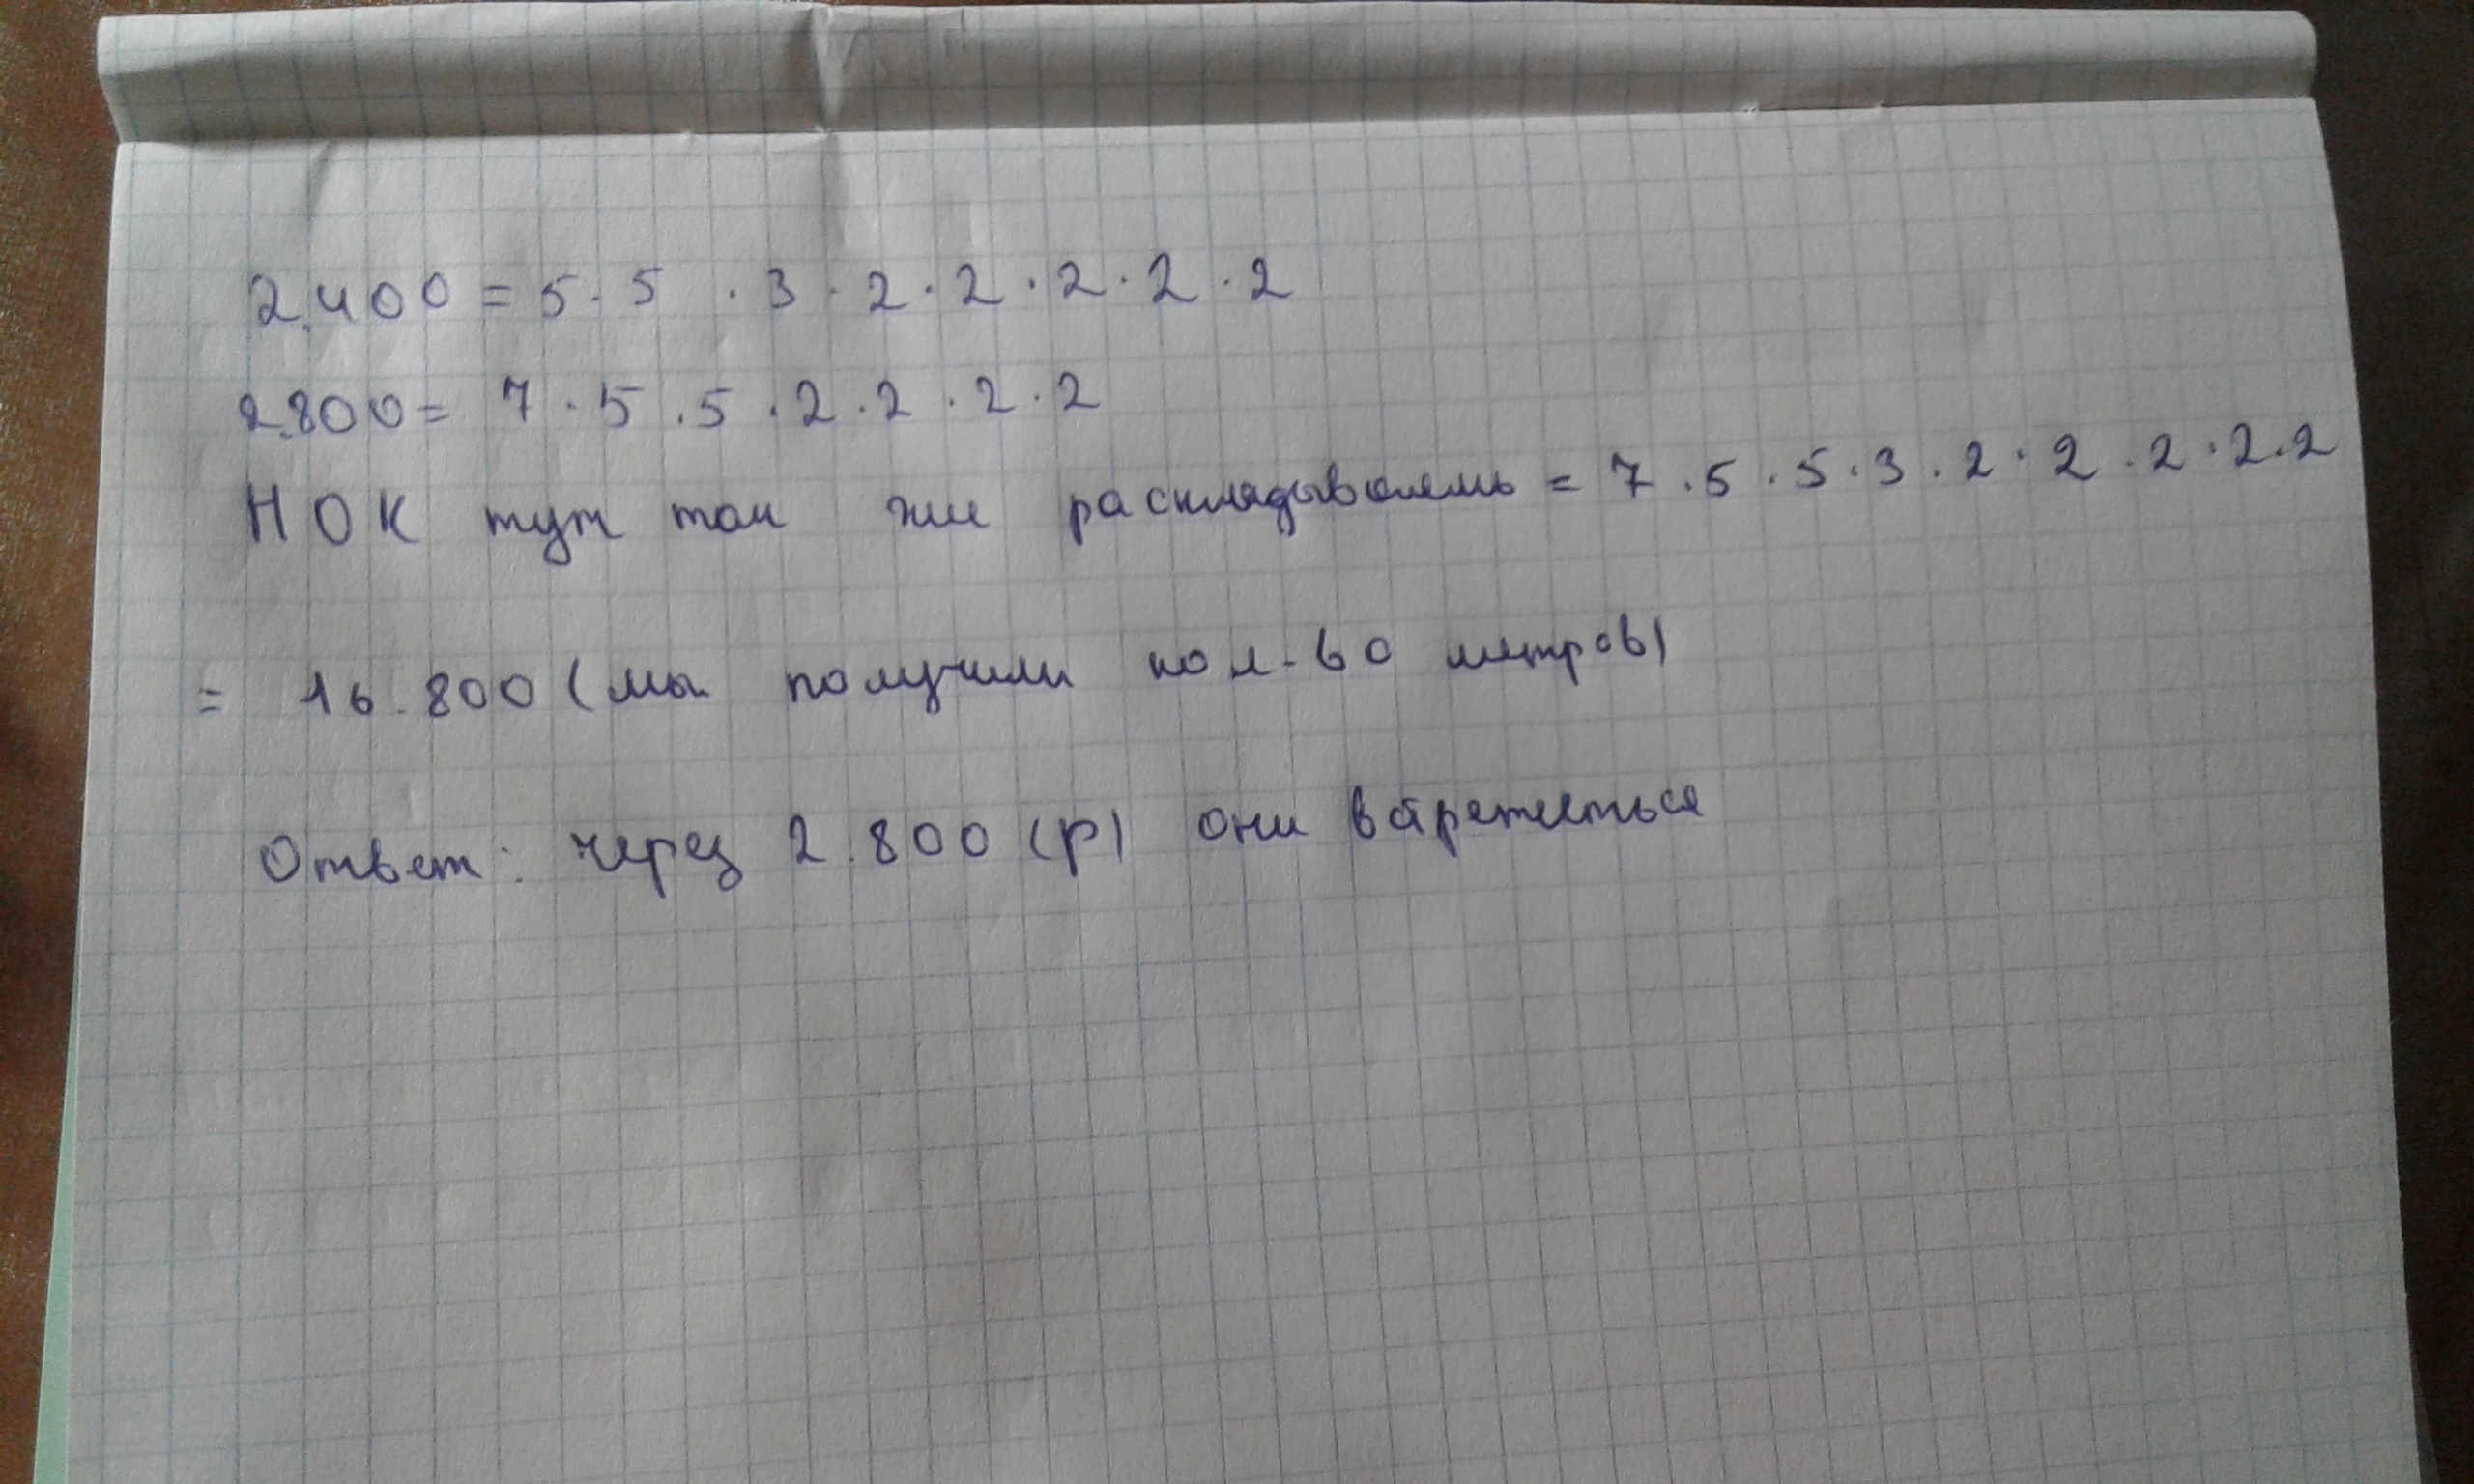 2.400 = 5 · 5 · 3 · 2 · 2 · 2 · 2 · 2
2.800 = 7 · 5 · 5 · 2 · 2 · 2 · 2
НОК тут так же раскладываем = 7 · 5 · 5 · 3 · 2 · 2 · 2 · 2 · 2
= 16.800 (мы получили кол-во метров)
Ответ: через 2.800 (р) они